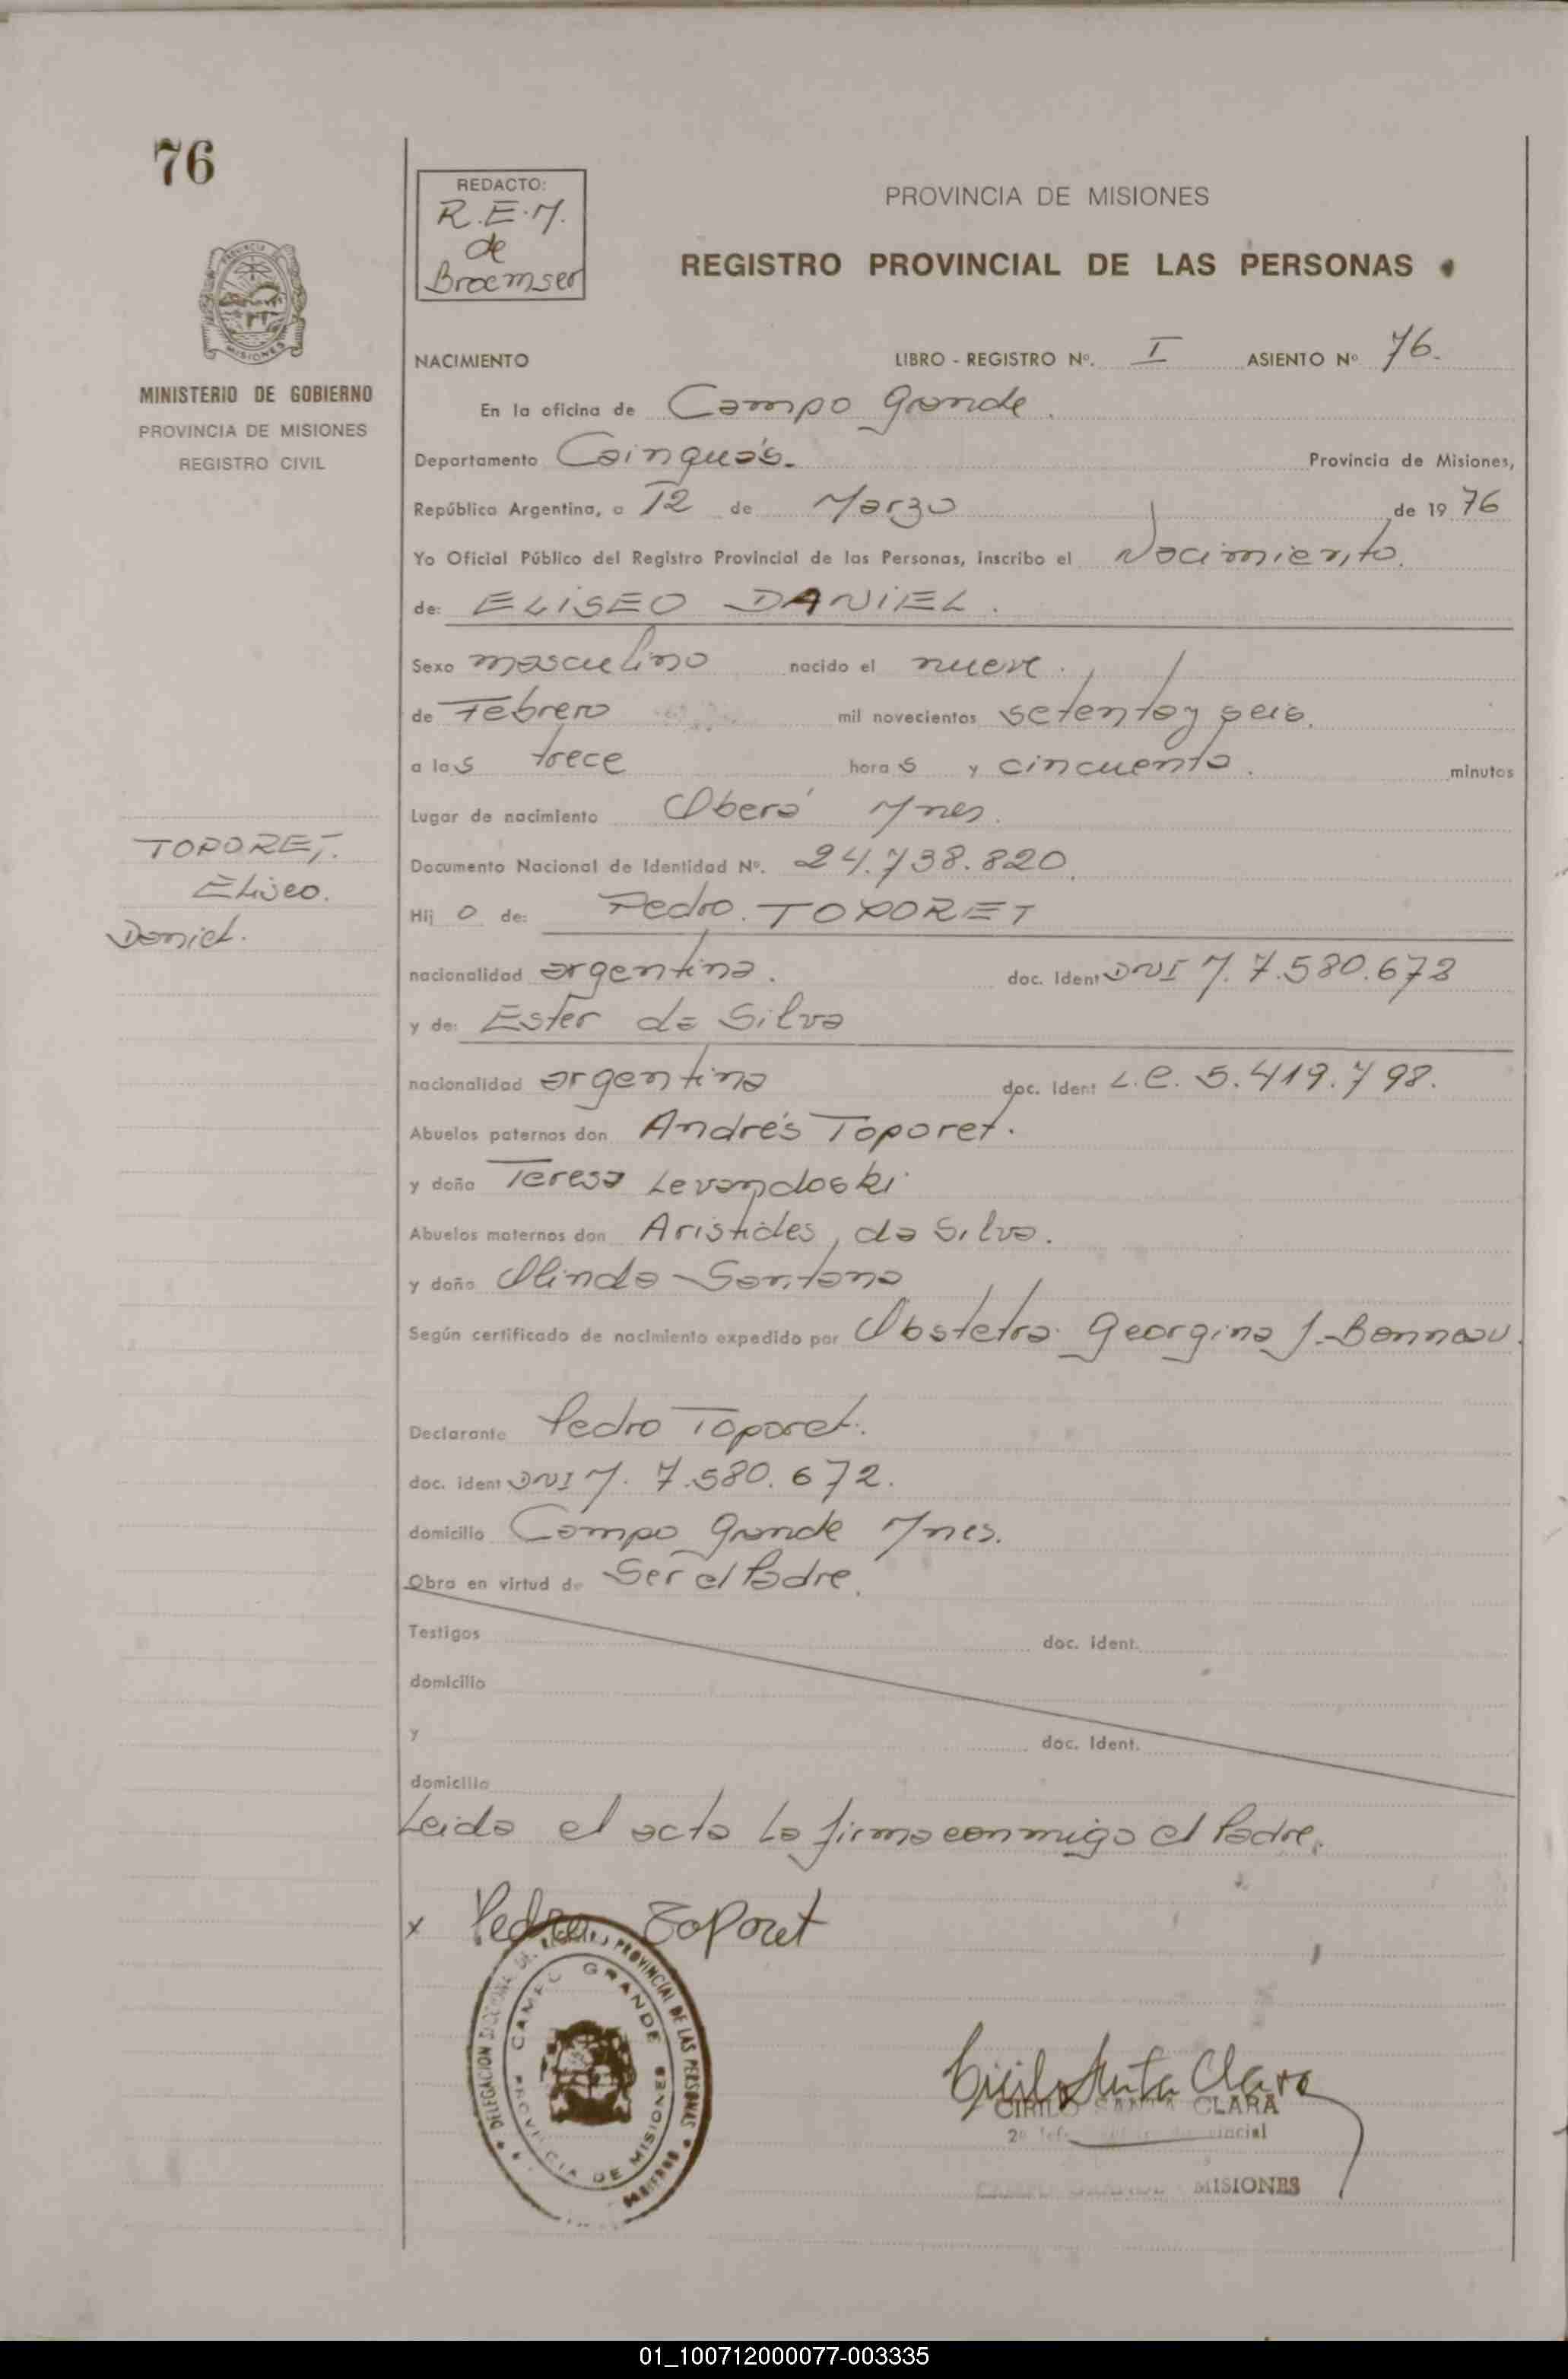 76
REDACTO:
R.E.M.
de
Broemser
PROVINCIA DE MISIONES
REGISTRO PROVINCIAL DE LAS PERSONAS
MINISTERIO DE GOBIERNO
PROVINCIA DE MISIONES
REGISTRO CIVIL
NACIMIENTO LIBRO - REGISTRO Nº. I ASIENTO Nº 76.
En la oficina de Campo Grande.
Departamento Cainguás. Provincia de Misiones,
República Argentina, a 12 de Marzo de 19 76
Yo Oficial Público del Registro Provincial de las Personas, inscribo el Nacimiento.
de: ELISEO DANIEL.
Sexo masculino nacido el nueve.
de Febrero mil novecientos setenta y seis.
a las trece horas y cincuenta. minutos
Lugar de nacimiento Oberá Mnes.
Documento Nacional de Identidad Nº. 24.738.820.
TOPORET.
Eliseo.
Daniel.
Hij o de: Pedro. TOPORET
nacionalidad argentina. doc. Ident DNI M. 7.580.672
y de: Ester da Silva
nacionalidad argentina doc. Ident L.C. 5.419.798.
Abuelos paternos don Andrés Toporet.
y doña Teresa Levandoski
Abuelos maternos don Aristides, da Silva.
y doña Olinda Santana
Según certificado de nacimiento expedido por Obstetra. Georgina J. Bonneau.
Declarante Pedro Toporet.
doc. ident DNI M. 7.580.672.
domicilio Campo Grande Mnes.
Obra en virtud de Ser el Padre.
Testigos doc. ident.
domicilio
y doc. Ident.
domicilio
Leida el acta la firma conmigo el Padre.
x Pedro Toporet
DELEGACION PROVINCIAL DE LAS PERSONAS
CAMPO GRANDE
PROVINCIA DE MISIONES
Cirilo Santa Clara
CIRILO SANTA CLARA
MISIONES
01_100712000077-003335